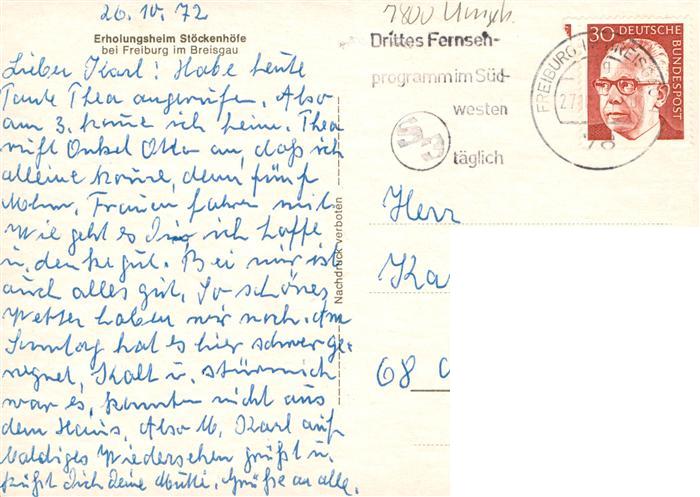 26.10.72
Erholungsheim Stöckenhöfe
bei Freiburg im Breisgau
Lieber Karl! Habe heute
Tante Thea angerufen. Also
am 3. komme ich heim. Thea
ruft Onkel Otto an, daß ich
alleine komme, denn fünf
Mohn. Frauen fahren mit.
Wie geht es Dir, ich hoffe
u. denke gut. Bei mir ist
auch alles gut. So schönes
Wetter haben wir noch. Am
Sonntag hat es hier schwer ge-
regnet, Kalt u. stürmisch
war es, konnten nicht aus
dem Haus. Also lb. Karl auf
baldiges Wiedersehen grüßt u.
küßt Dich deine Mutti. Grüße an alle.
Nachdruck verboten
7800
Drittes Fernseh-
programm im Süd-
westen
täglich
FREIBURG
27
78
30 DEUTSCHE
BUNDESPOST
Herr
Ka
68